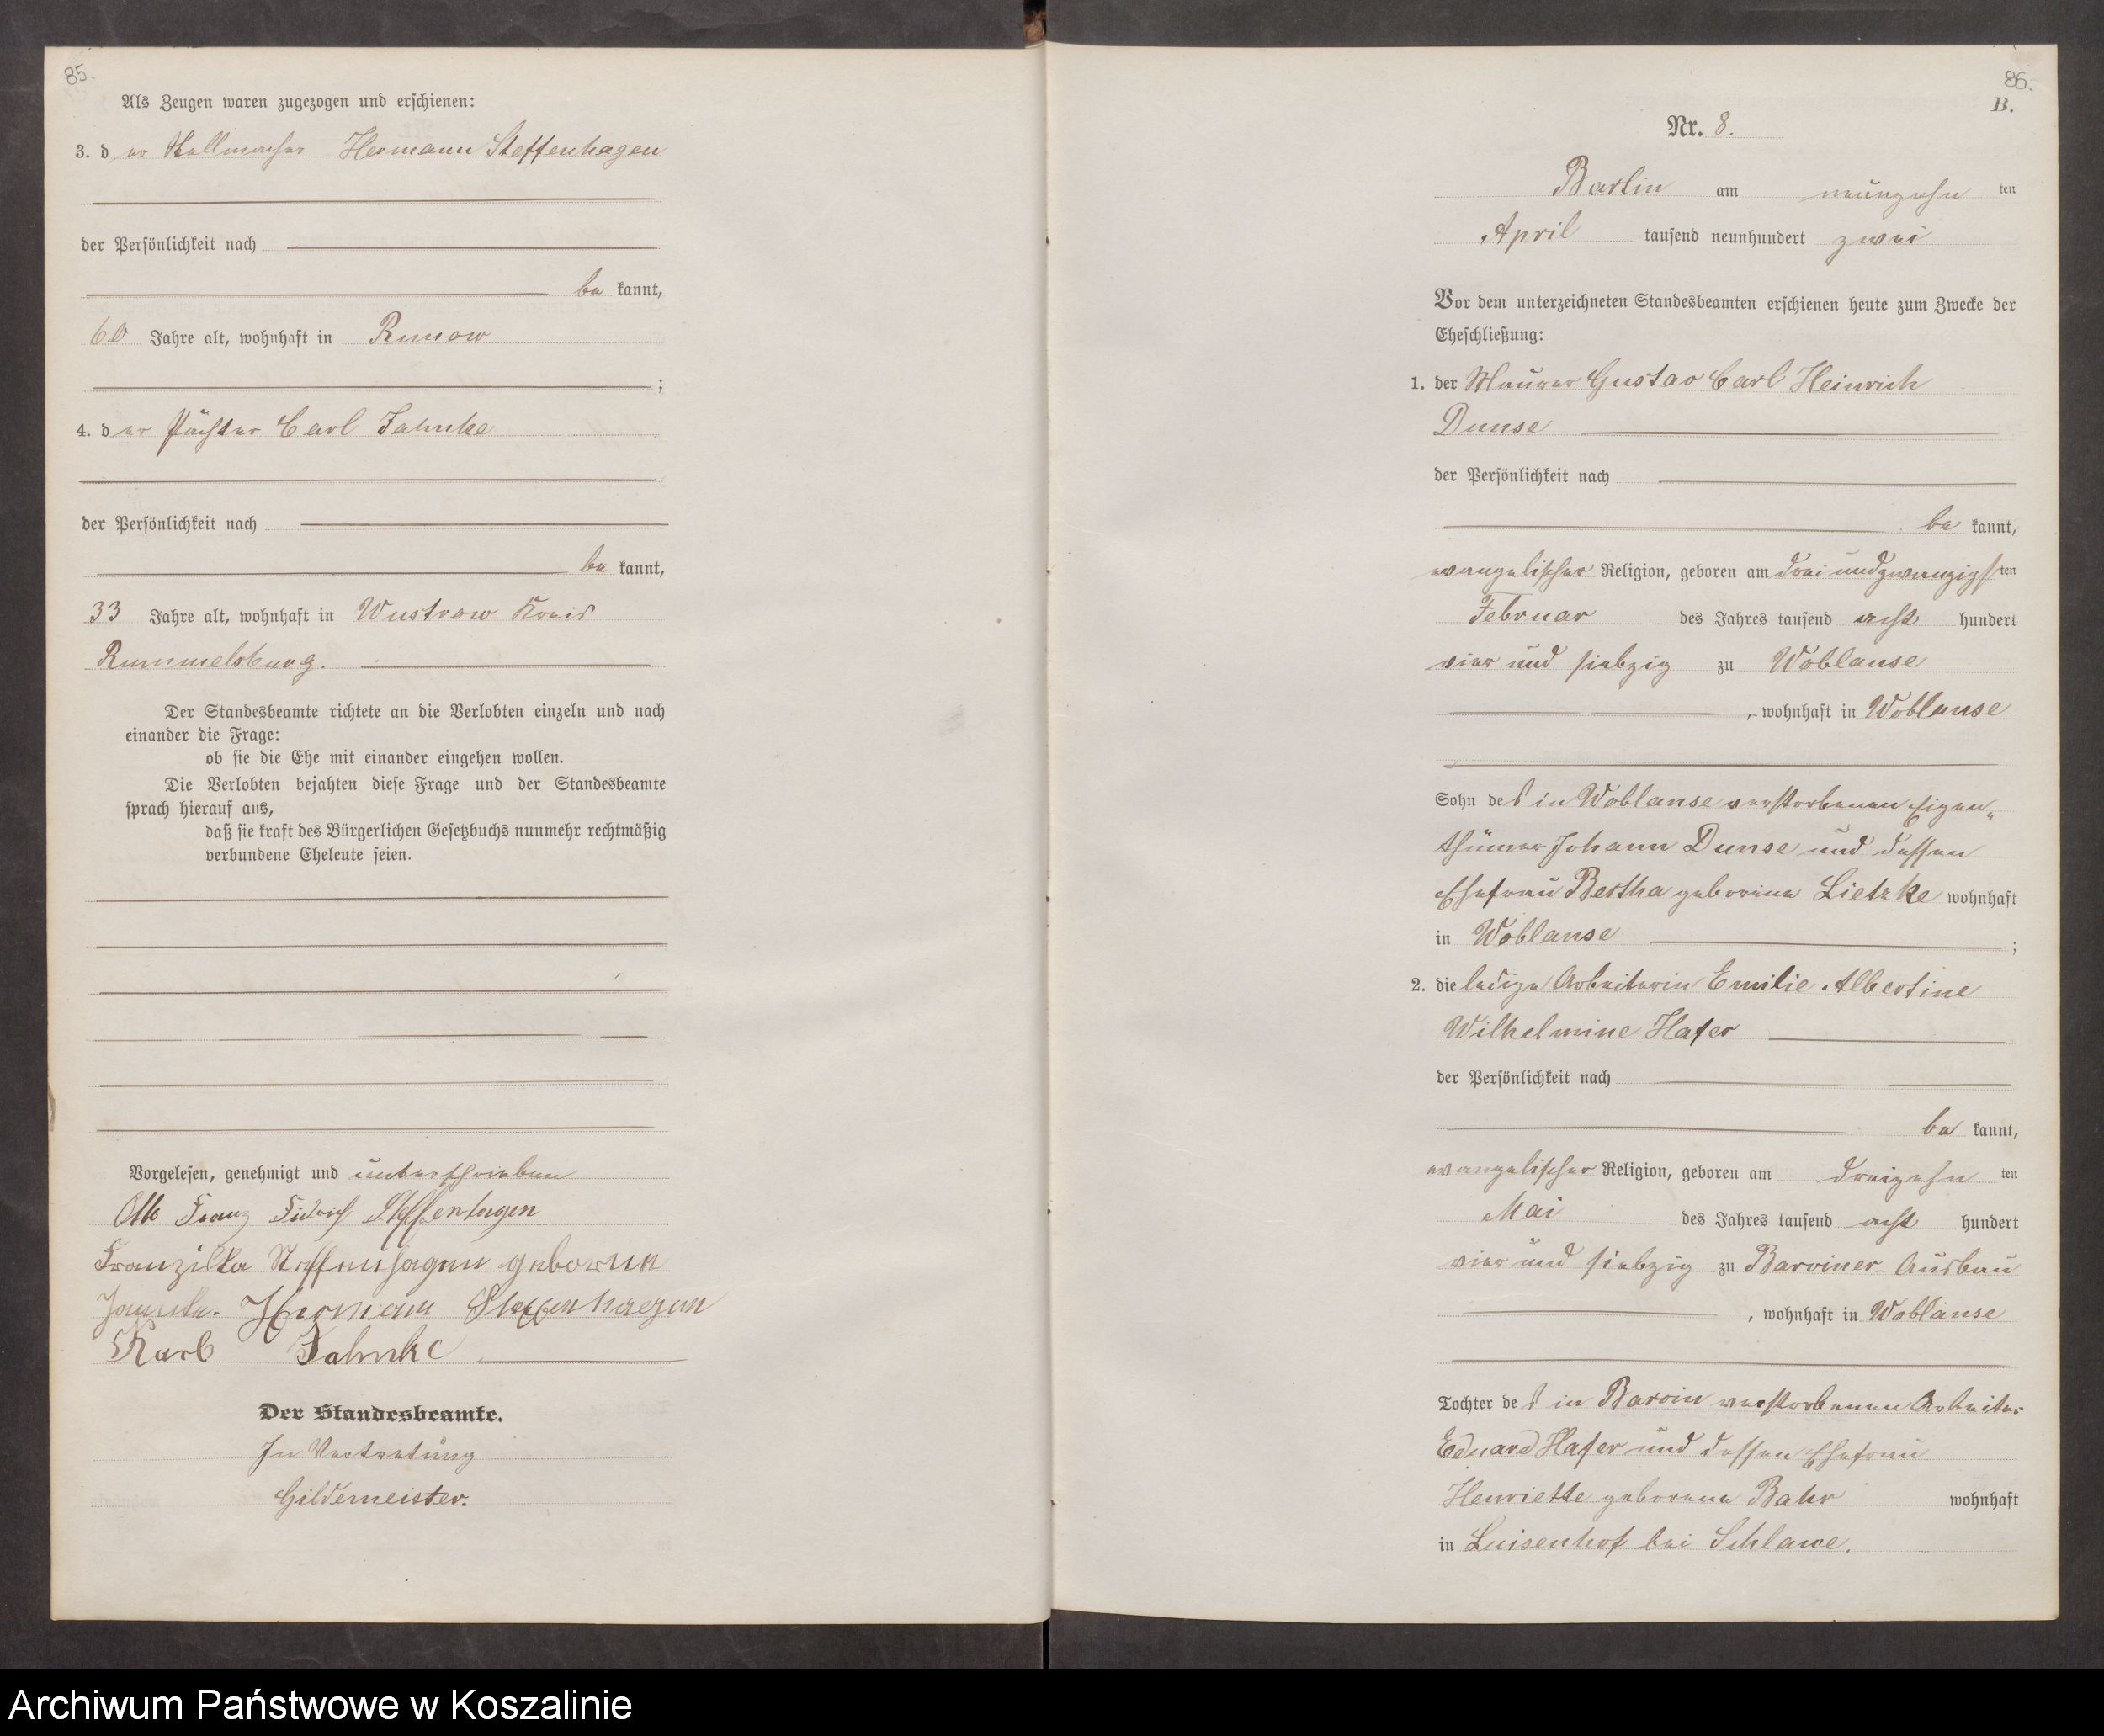 85.
Als Zeugen waren zugezogen und erschienen:
3. der Hermann Steffenhagen
der Persönlichkeit nach
be kannt,
60 Jahre alt, wohnhaft in Rumow
;
4. der Pächter Carl Jahnke
der Persönlichkeit nach
be kannt,
33 Jahre alt, wohnhaft in Wustrow Kreis
Rummelsburg.
Der Standesbeamte richtete an die Verlobten einzeln und nach
einander die Frage:
ob sie die Ehe mit einander eingehen wollen.
Die Verlobten bejahten diese Frage und der Standesbeamte
sprach hierauf aus,
daß sie kraft des Bürgerlichen Gesetzbuchs nunmehr rechtmäßig
verbundene Eheleute seien.
Vorgelesen, genehmigt und unterschrieben
Otto Franz Steffenhagen
Franziska Steffenhagen geboren
Hermann Steffenhagen
Karl Jahnke
Der Standesbeamte.
In Vertretung
Gildemeister.
86.
B.
Nr. 8.
Bartin am neunzehn ten
April tausend neunhundert zwei
Vor dem unterzeichneten Standesbeamten erschienen heute zum Zwecke der
Eheschließung:
1. der Maurer Gustav Carl Heinrich
Dunse
der Persönlichkeit nach
be kannt,
evangelischer Religion, geboren am drei und zwanzigsten
Februar des Jahres tausend acht hundert
vier und siebzig zu Woblanse
, wohnhaft in Woblanse
Sohn des in Woblanse verstorbenen Eigen„
thümer Johann Dunse und dessen
Ehefrau Bertha geborene Lietzke wohnhaft
in Woblanse ;
2. die ledige Arbeiterin Emilie Albertine
Wilhelmine Hafer
der Persönlichkeit nach
be kannt,
evangelischer Religion, geboren am dreizehn ten
Mai des Jahres tausend acht hundert
vier und siebzig zu Barviner Ausbau
, wohnhaft in Woblanse
Tochter des in Barvin verstorbenen Arbeiter
Eduard Hafer und dessen Ehefrau
Henriette geborene Bahr wohnhaft
in Luisenhof bei Schlawe.
Archiwum Państwowe w Koszalinie